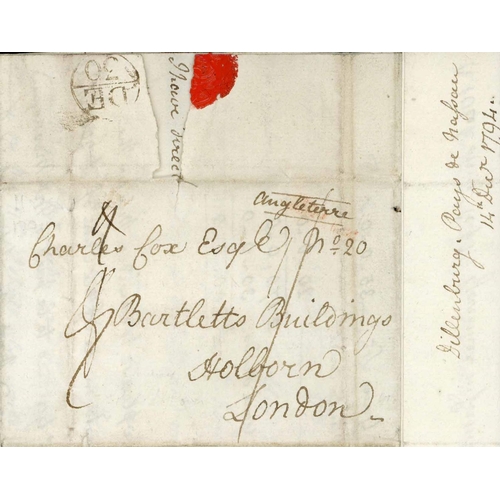 DE
30
Angleterre
Charles Cox Esqr No. 20
Bartletts Buildings
Holborn
London
Dillenburg. Pays de Nassau
14 Decr 1794.